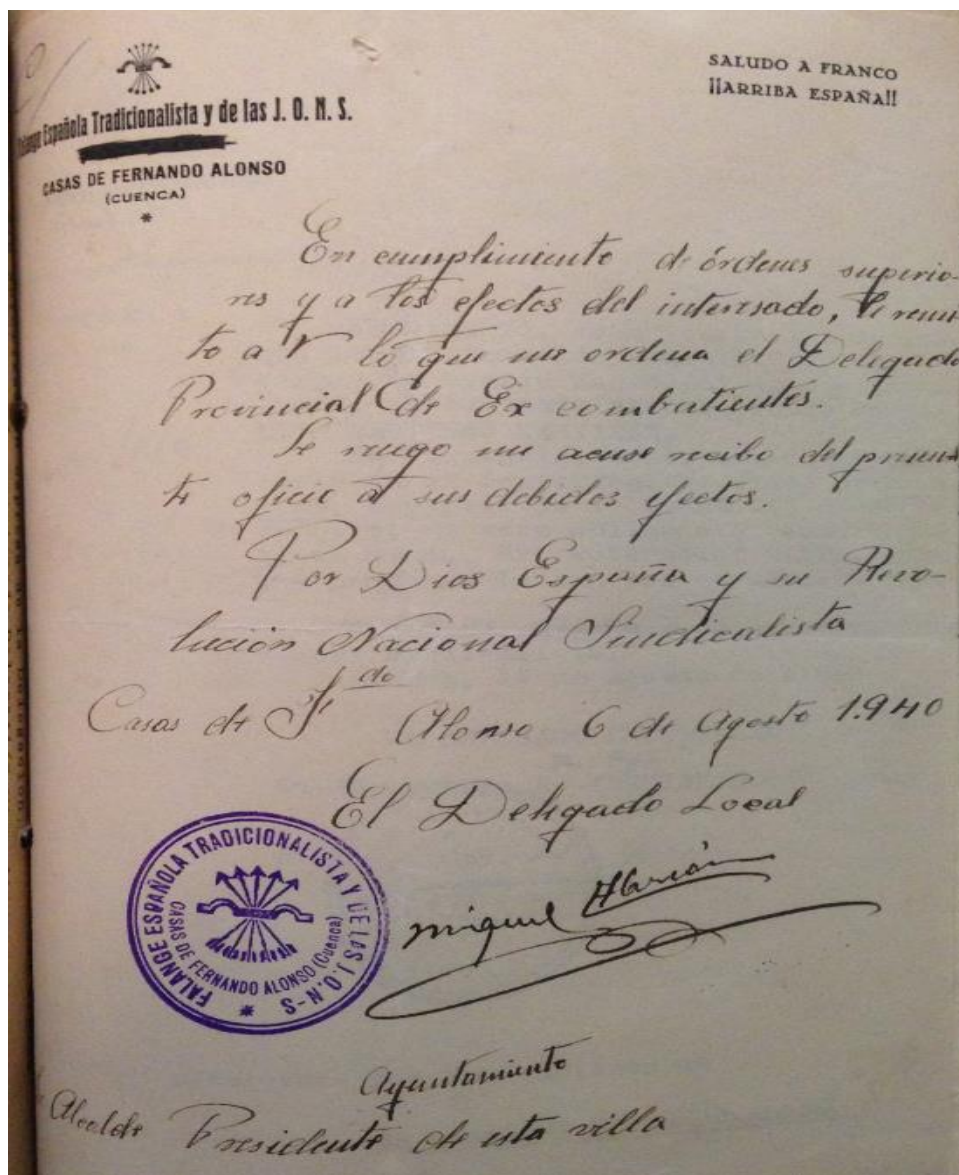 SALUDO A FRANCO
¡¡ARRIBA ESPAÑA!!
Española Tradicionalista y de las J. O. N. S.
CASAS DE FERNANDO ALONSO
(CUENCA)
*
En cumplimiento de órdenes superio-
res y a los efectos del interesado, le remi
to a V lo que me ordena el Delegado
Provincial de Ex combatientes.
Le ruego me acuse recibo del presen
te oficio a sus debidos efectos.
Por Dios España y su Revo-
lución Nacional Sindicalista
Casas de Fdo Alonso 6 de Agosto 1.940
El Delegado Local
FALANGE ESPAÑOLA TRADICIONALISTA Y DE LAS J.O.N-S
CASAS DE FERNANDO ALONSO (Cuenca)
*
Miguel
Ayuntamiento
Alcalde Presidente de esta villa